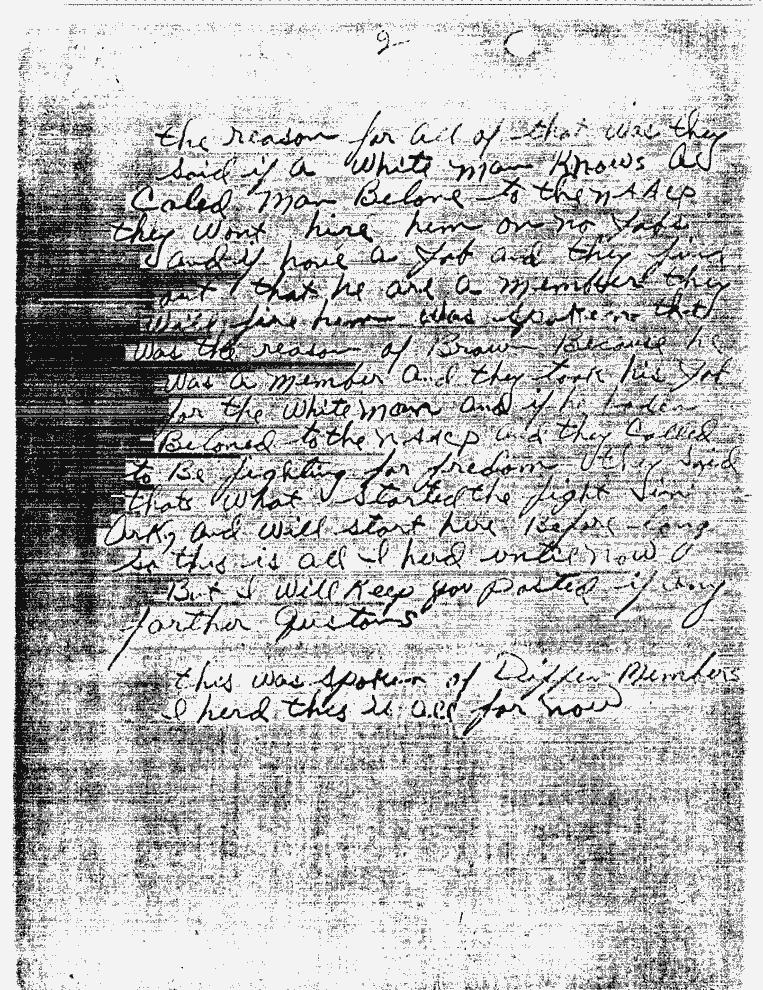 2-
the reason for all of that was they
said if a White man Knows a
Coled Man Belone to the NAACP
they Wont hire him on no Jobs
and if have a Job and they find
out that he are a member they
will fire him was spoken that
was the reason of Brown Because he
was a member and they took his Job
for the White man and if he
Beloned to the NAACP and they Called
to Be fighting for fredom they said
thats What Started the fight
Ark, and will start here Before long
so this is all I herd until now
But I will Keep you posted if any
farther Questons
this was spoken of Differ Members
I herd this is all for now